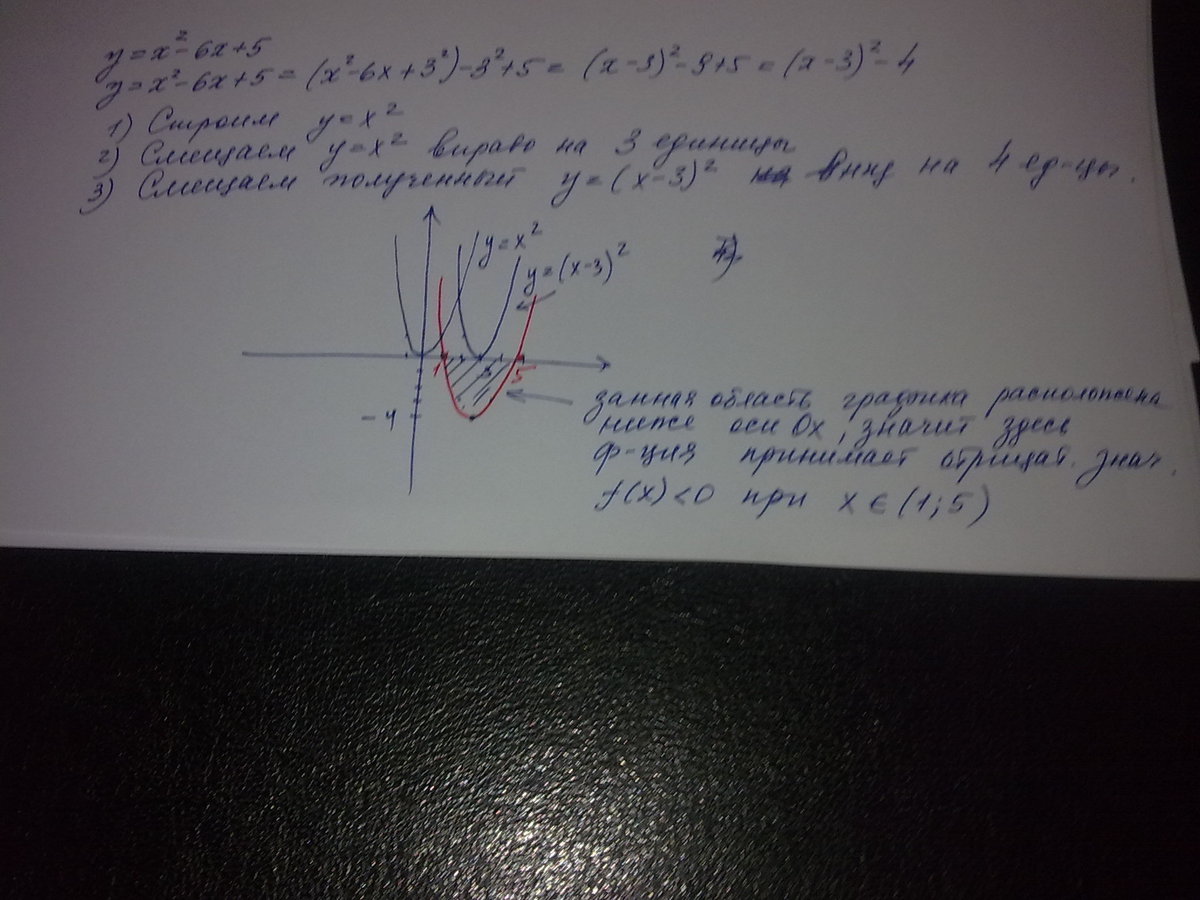 y=x²-6x+5
y=x²-6x+5=(x²-6x+3²)-3²+5=(x-3)²-9+5=(x-3)²-4
1) Строим y=x²
2) Смещаем y=x² вправо на 3 единицы
3) Смещаем полученный y=(x-3)² вниз на 4 ед-цы.
y=x²
y=(x-3)²
1 3 5
-4
данная область графика расположена
ниже оси Ox, значит здесь
ф-ция принимает отрицат. знач.
f(x)<0 при x∈(1;5)